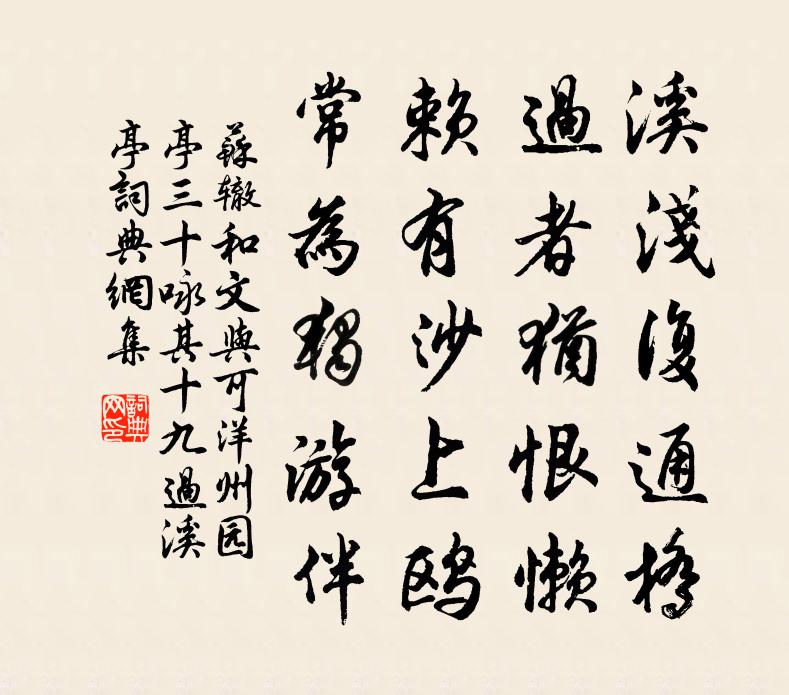 溪淺復通橋
過者猶恨懶
赖有沙上鸥
常為獨游伴
蘇辙和文與可洋州园
亭三十咏其十九過溪
亭詞典網集
詞典
网印